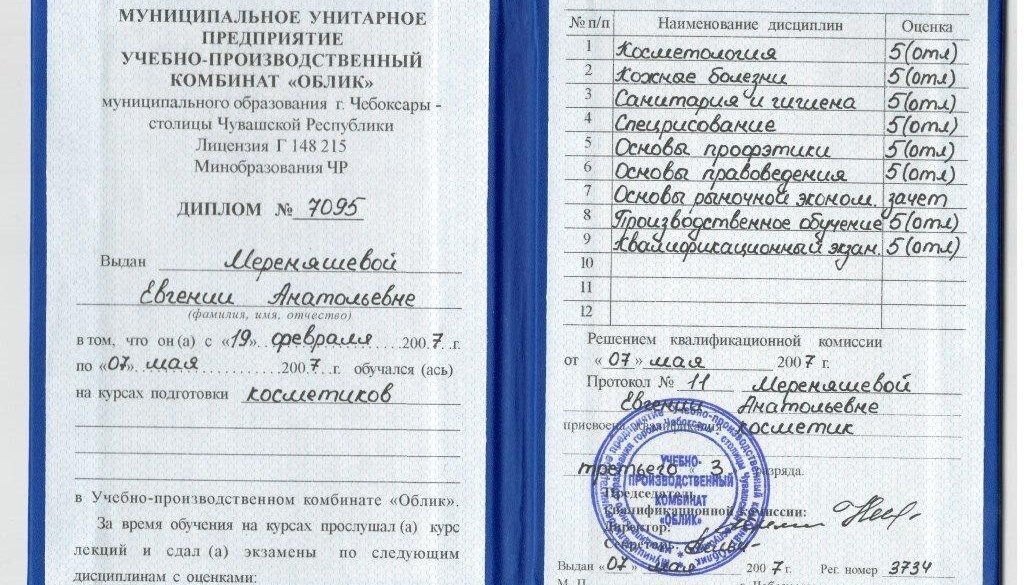 МУНИЦИПАЛЬНОЕ УНИТАРНОЕ
ПРЕДПРИЯТИЕ
УЧЕБНО-ПРОИЗВОДСТВЕННЫЙ
КОМБИНАТ «ОБЛИК»
муниципального образования г. Чебоксары -
столицы Чувашской Республики
Лицензия Г 148 215
Минобразования ЧР
ДИПЛОМ № 7095
Выдан Мереняшевой
Евгении Анатольевне
(фамилия, имя, отчество)
в том, что он(а) с «19» февраля 2007 г.
по «07» мая 2007 г. обучался (ась)
на курсах подготовки косметиков
в Учебно-производственном комбинате «Облик».
За время обучения на курсах прослушал (а) курс
лекций и сдал (а) экзамены по следующим
дисциплинам с оценками:
№ п/п Наименование дисциплин Оценка
1 Косметология 5(отл)
2 Кожные болезни 5(отл)
3 Санитария и гигиена 5(отл)
4 Спецрисование 5(отл)
5 Основы профэтики 5(отл)
6 Основы правоведения 5(отл)
7 Основы рыночной эконом. зачет
8 Производственное обучение 5(отл)
9 Квалификационный экзан. 5(отл)
10
11
12
Решением квалификационной комиссии
от «07» мая 2007 г.
Протокол № 11 Мереняшевой
Евгении Анатольевне
присвоена квалификация косметик
третьего « 3 разряда.
Председатель
Квалификационной комиссии:
Директор:
Секретарь:
Выдан «07» мая 2007 г. Рег. номер 3734
М. П. г. Чебоксары
УЧЕБНО-
ПРОИЗВОДСТВЕННЫЙ
КОМБИНАТ
«ОБЛИК»